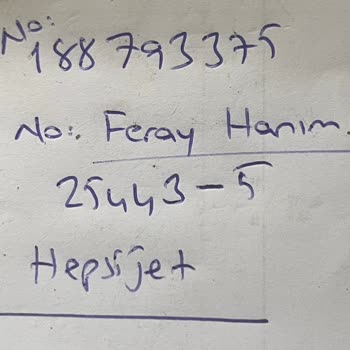 No:
188793375
No:. Feray Hanım.
25443-5
Hepsijet